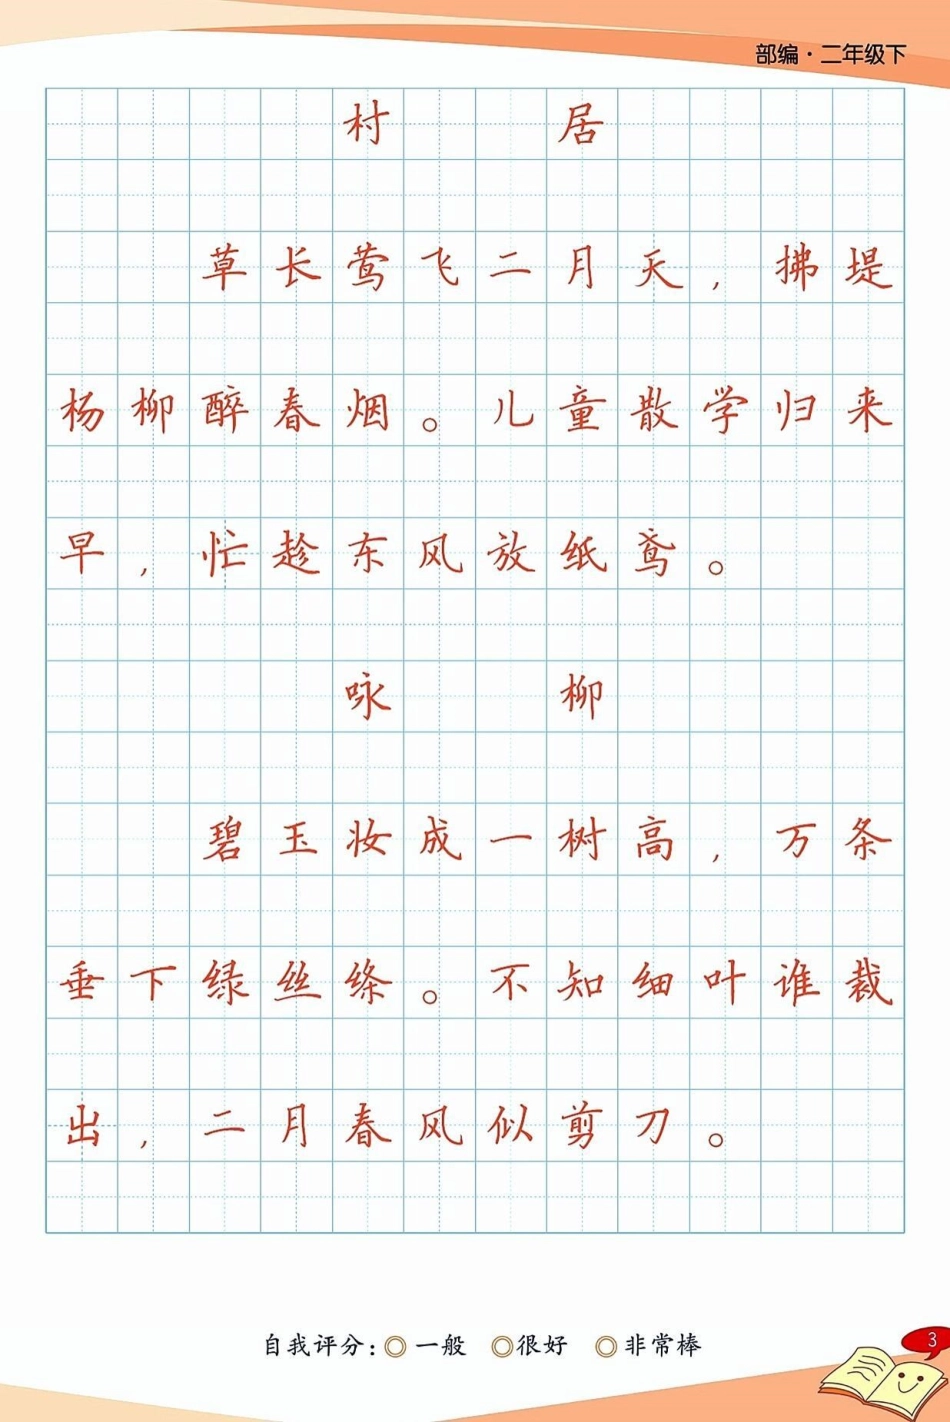 部编·二年级下
村 居
草长莺飞二月天，拂堤
杨柳醉春烟。儿童散学归来
早，忙趁东风放纸鸢。
咏 柳
碧玉妆成一树高，万条
垂下绿丝绦。不知细叶谁裁
出，二月春风似剪刀。
自我评分：◎一般 ◎很好 ◎非常棒
3